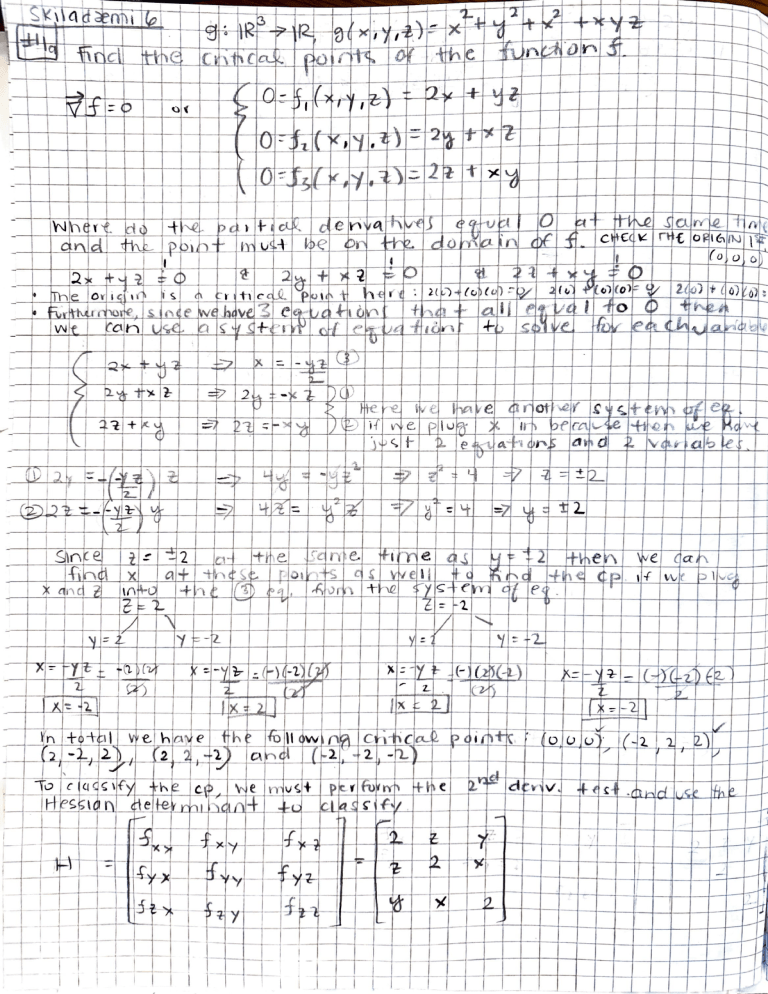 Skiladæmi 6
g: ℝ³ → ℝ, g(x,y,z) = x² + y² + x² + xyz
#1a Find the critical points of the function f.
∇f = 0 or { 0 = f₁(x,y,z) = 2x + yz
0 = f₂(x,y,z) = 2y + xz
0 = f₃(x,y,z) = 2z + xy
Where do the partial derivatives equal 0 at the same time
and the point must be on the domain of f. CHECK THE ORIGIN 1st
(0,0,0)
2x + yz = 0 & 2y + xz = 0 & 2z + xy = 0
• The origin is a critical point here: 2(0)+(0)(0)=0, 2(0)+(0)(0)=0, 2(0)+(0)(0)=
• Furthermore, since we have 3 equations that all equal to 0 then
we can use a system of equations to solve for each variable
{ 2x + yz ⇒ x = -yz/2 ③
2y + xz ⇒ 2y = -xz ①
Here we have another system of eq.
2z + xy ⇒ 2z = -xy ② if we plug x in because then we have
just 2 equations and 2 variables.
① 2y = -(-yz/2) z ⇒ 4y = -yz² ⇒ z² = 4 ⇒ z = ±2
② 2z = -(-yz/2) y ⇒ 4z = y²z ⇒ y² = 4 ⇒ y = ±2
Since z = ±2 at the same time as y = ±2 then we can
find x at these points as well to find the cp if we plug
x and z into the ③ eq. from the system of eq.
z = 2 z = -2
y = 2 y = -2 y = 2 y = -2
x = -yz/2 = -(2)(2)/(2) x = -yz/2 = (-)(-2)(2)/(2) x = -yz/2 = (-)(2)(-2)/(2) x = -yz/2 = (-)(-2)(-2)/2
x = -2 x = 2 x = 2 x = -2
In total we have the following critical points: (0,0,0), (-2, 2, 2),
(2, -2, 2), (2, 2, -2) and (-2, -2, -2)
To classify the cp, we must perform the 2nd deriv. test and use the
Hessian determinant to classify
H = [ fxx fxy fxz ] = [ 2 z y ]
[ fyx fyy fyz ] [ z 2 x ]
[ fzx fzy fzz ] [ y x 2 ]